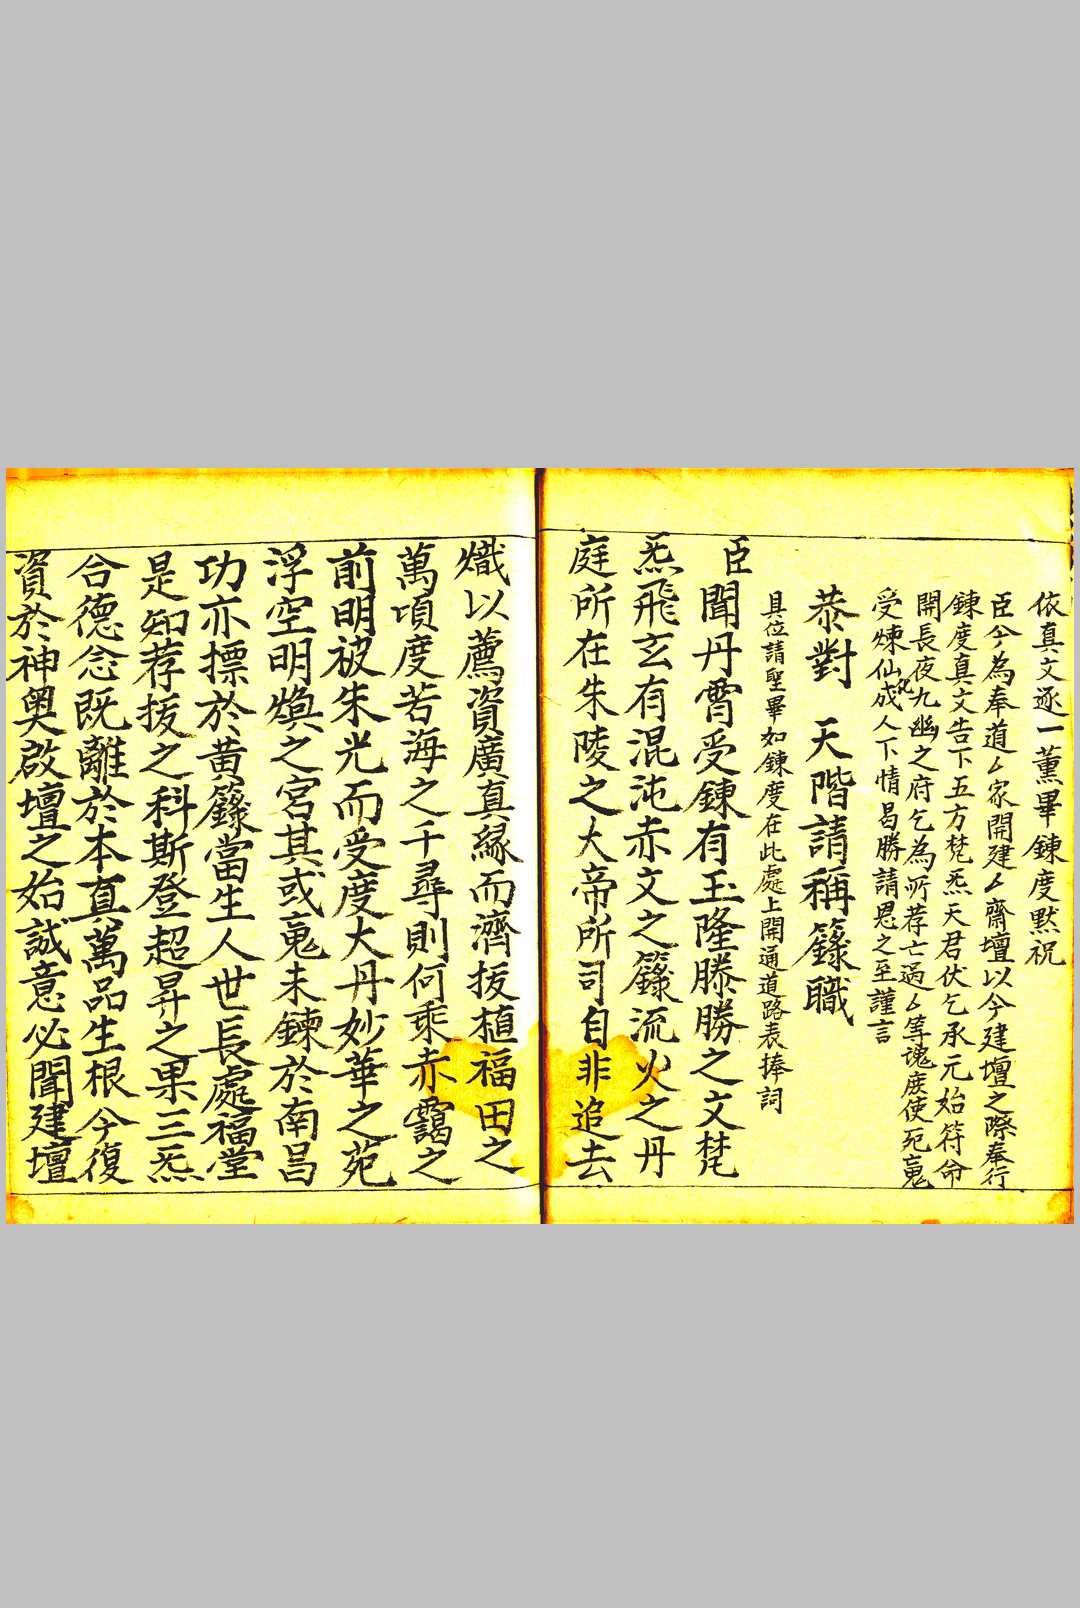 依真文逐一薰畢鍊度黙祝
臣今為奉道厶家開建厶齋壇以今建壇之際奉行
錬度真文告下五方梵炁天君伏乞承元始符命
開長夜九幽之府乞為所荐亡過厶等魂庻使死䰟
受煉仙化成人下情曷勝請恩之至謹言
恭對　天階請稱籙職
具位請聖畢如鍊度在此處上開通道路表捧詞
臣聞丹霄受鍊有玉隆滕勝之文梵
炁飛玄有混沌赤文之籙流火之丹
庭所在朱陵之大帝所司自非追去
熾以薦資廣真緣而濟拔植福田之
萬頃度苦海之千尋則何乘赤靄之
前明被朱光而受度大丹妙華之苑
浮空明煥之宮其或䰟未鍊於南昌
功亦摽於黃籙當生人世長處福堂
是知荐拔之科斯登超昇之果三炁
合德念既離於本真萬品生根今復
資於神奧啟壇之始誠意必聞建壇